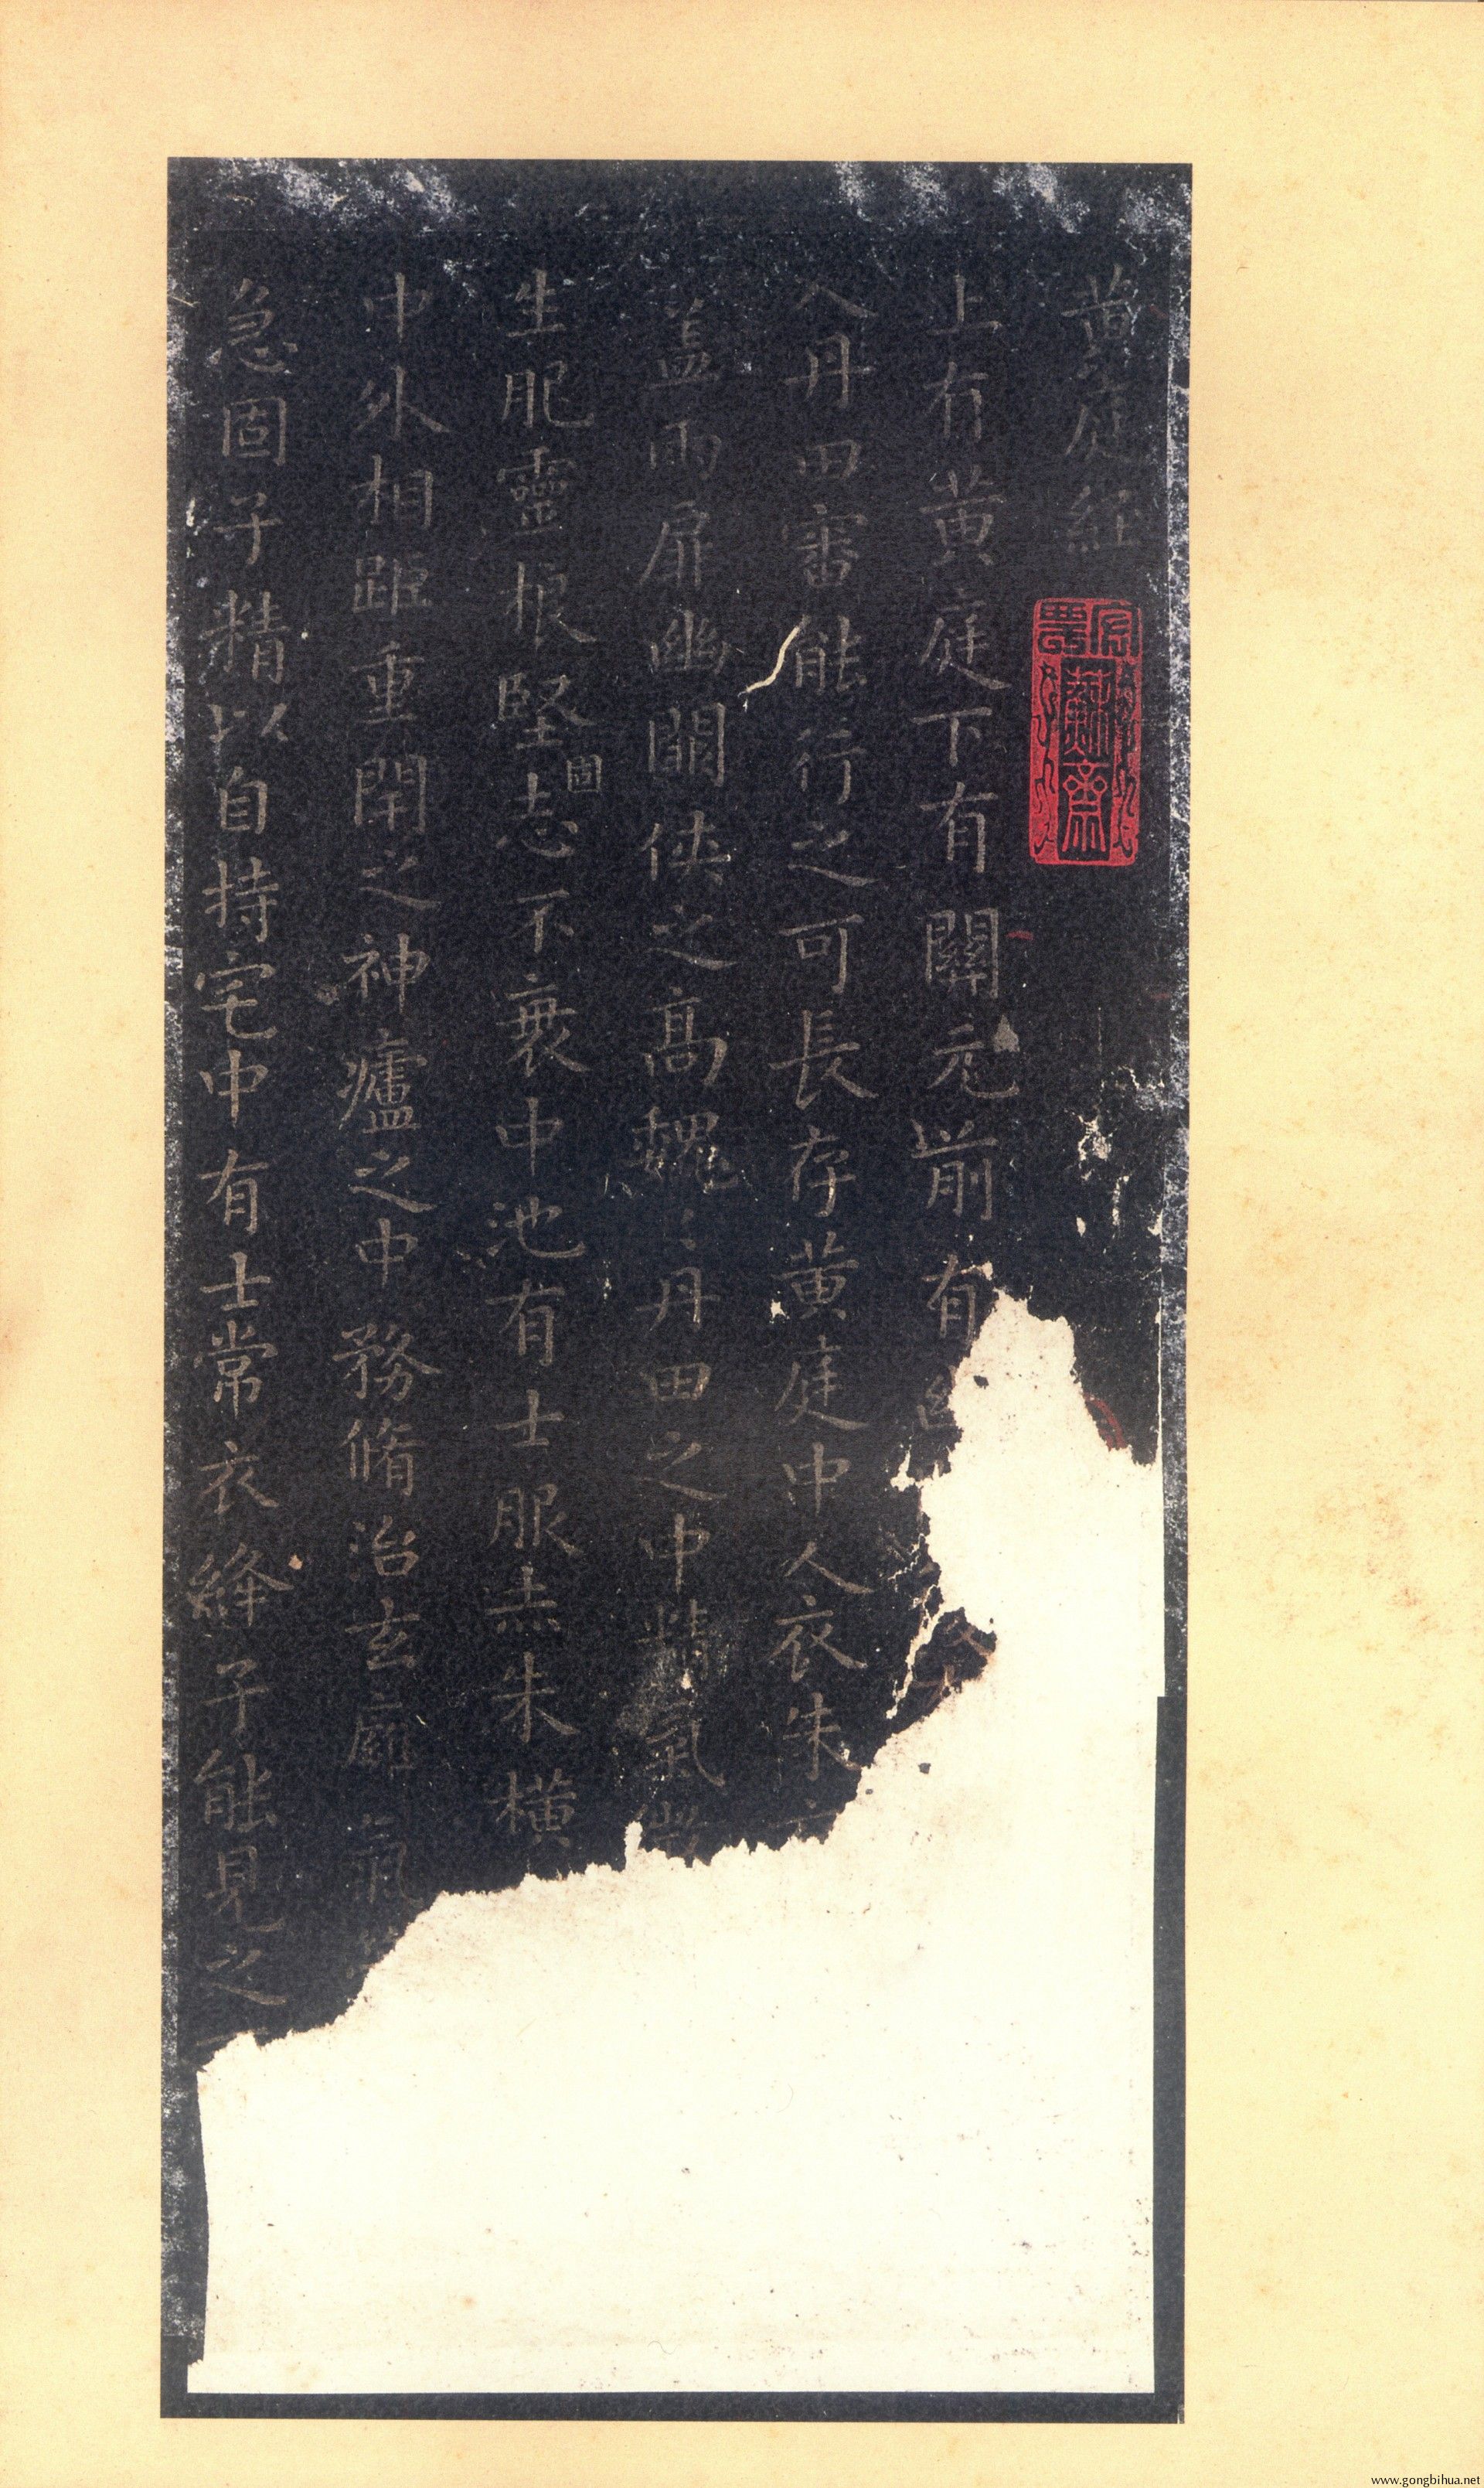 黃庭経
上有黄庭下有關元前有幽
入丹田審能行之可長存黄庭中人衣朱衣
盖兩扉幽闗俠之髙魏〻丹田之中精氣微
生肥靈根堅志不衰中池有士服赤朱横
固
中外相距重閇之神廬之中務脩治玄廱氣管
急固子精以自持宅中有士常衣絳子能見之
www.gongbihua.net